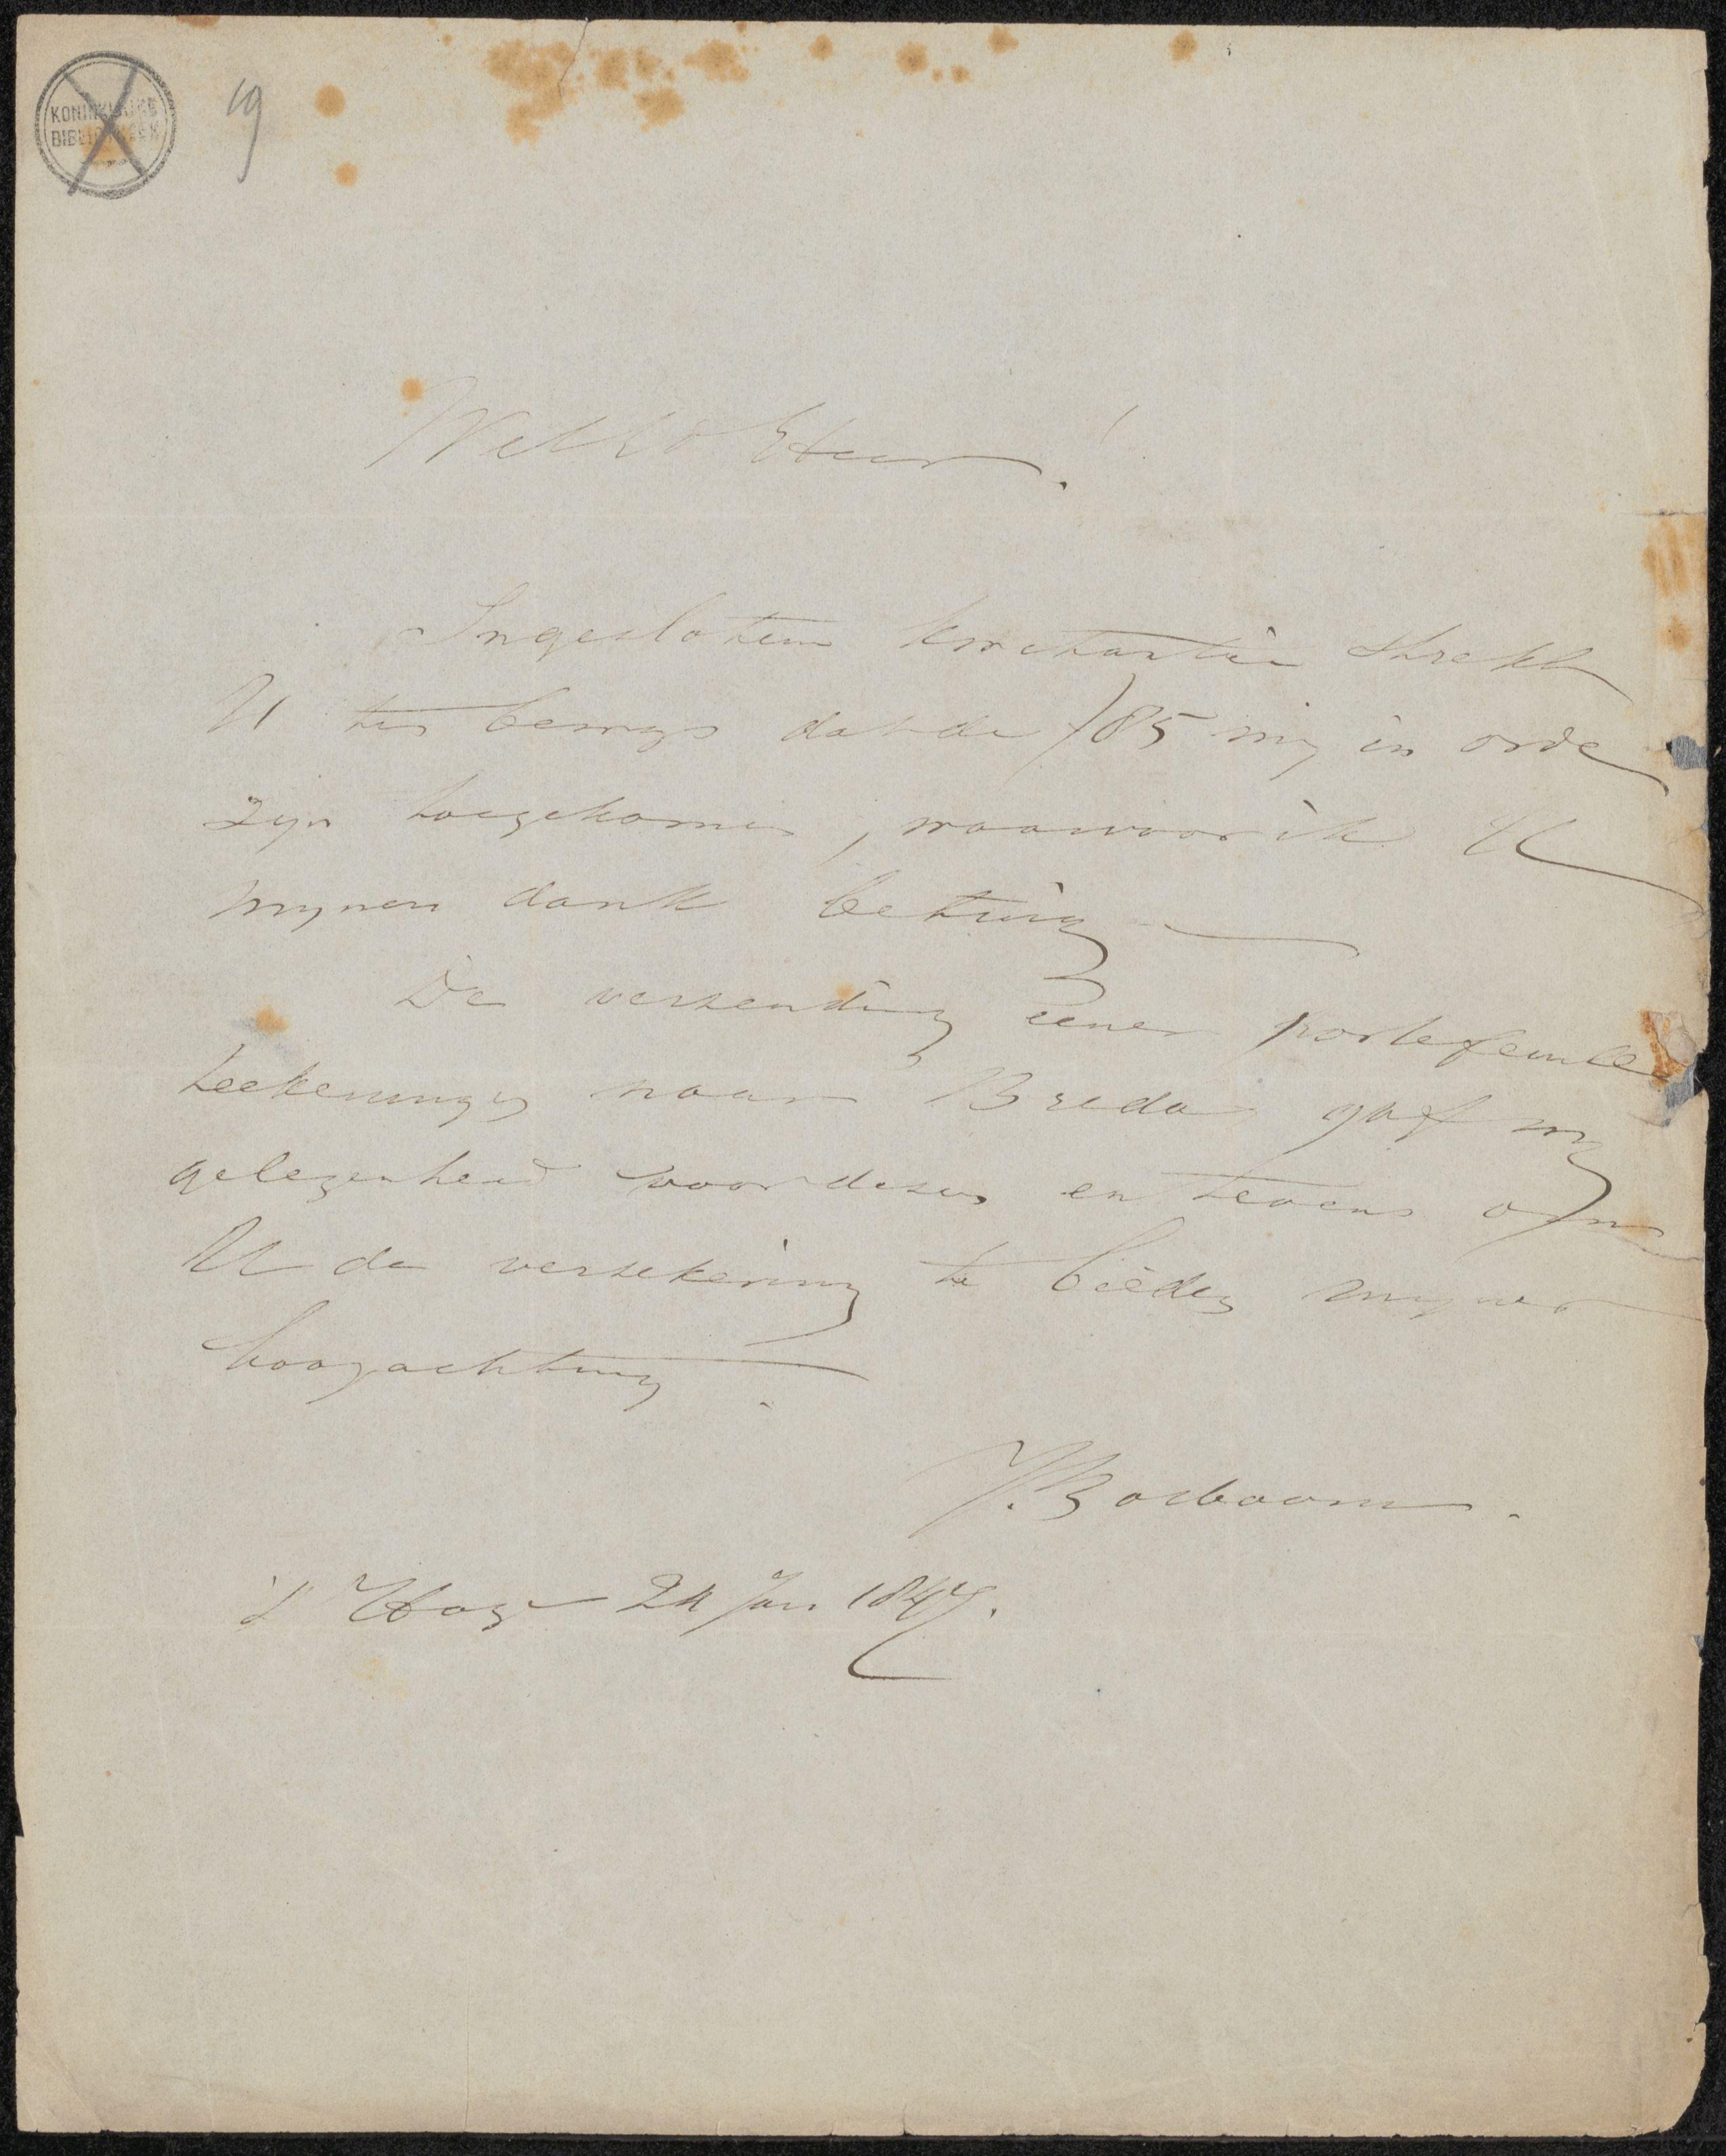 KONINKLIJKE
BIBLIOTHEEK
19
Heer!
Ingesloten kwitantie strekt
U ten bewys dat de f85 mij in orde
zijn toegekomen, waarvoor ik U
mynen dank betuig
De verzending eener portefeuille
teekeningen naar Breda gaf mij
gelegenheid voor deze en tevens om
U de verzekering te bieden mijner
hoogachting.
J. Bosboom.
's Hage 24 Jan 1847.